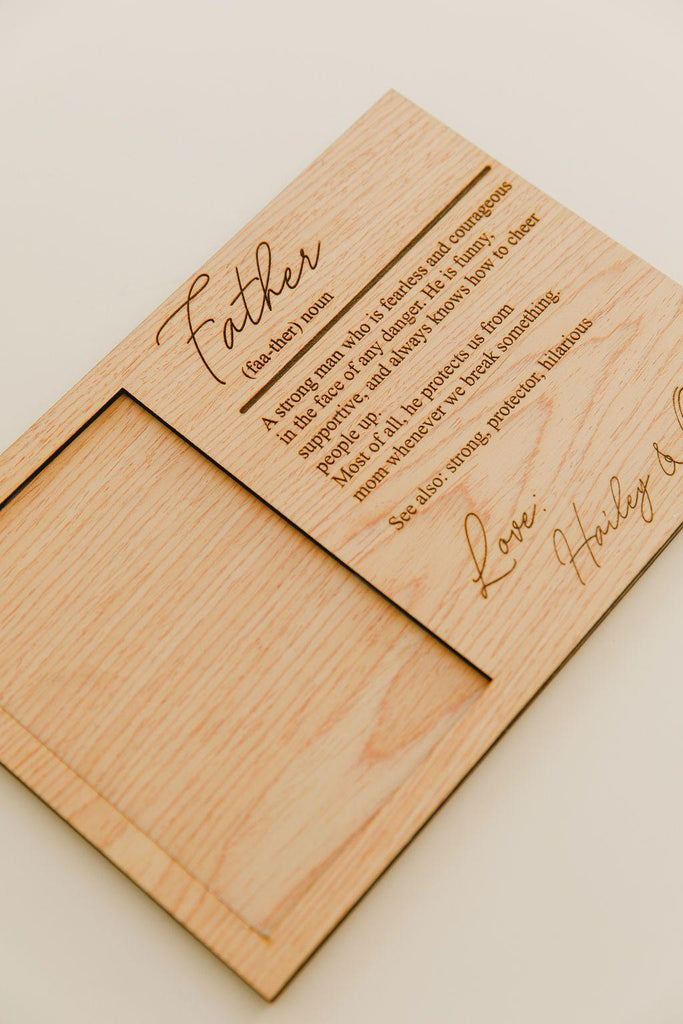 Father
(faa-ther) noun
A strong man who is fearless and courageous
in the face of any danger. He is funny,
supportive, and always knows how to cheer
people up.
Most of all, he protects us from
mom whenever we break something.
See also: strong, protector, hilarious
Love:
Hailey &